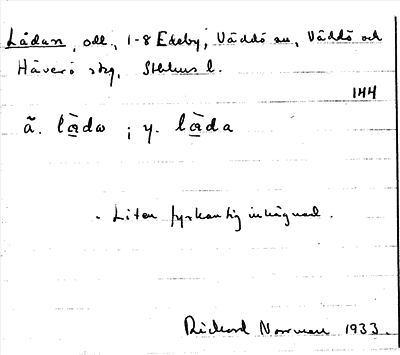 Lådan, odl., 1-8 Edeby, Väddö sn, Väddö och
Häverö skg, Sthlms l.
144
ä. lådω ; y. låda
- Liten fyrkantig inhägnad.
Rickard Norrman 1933.